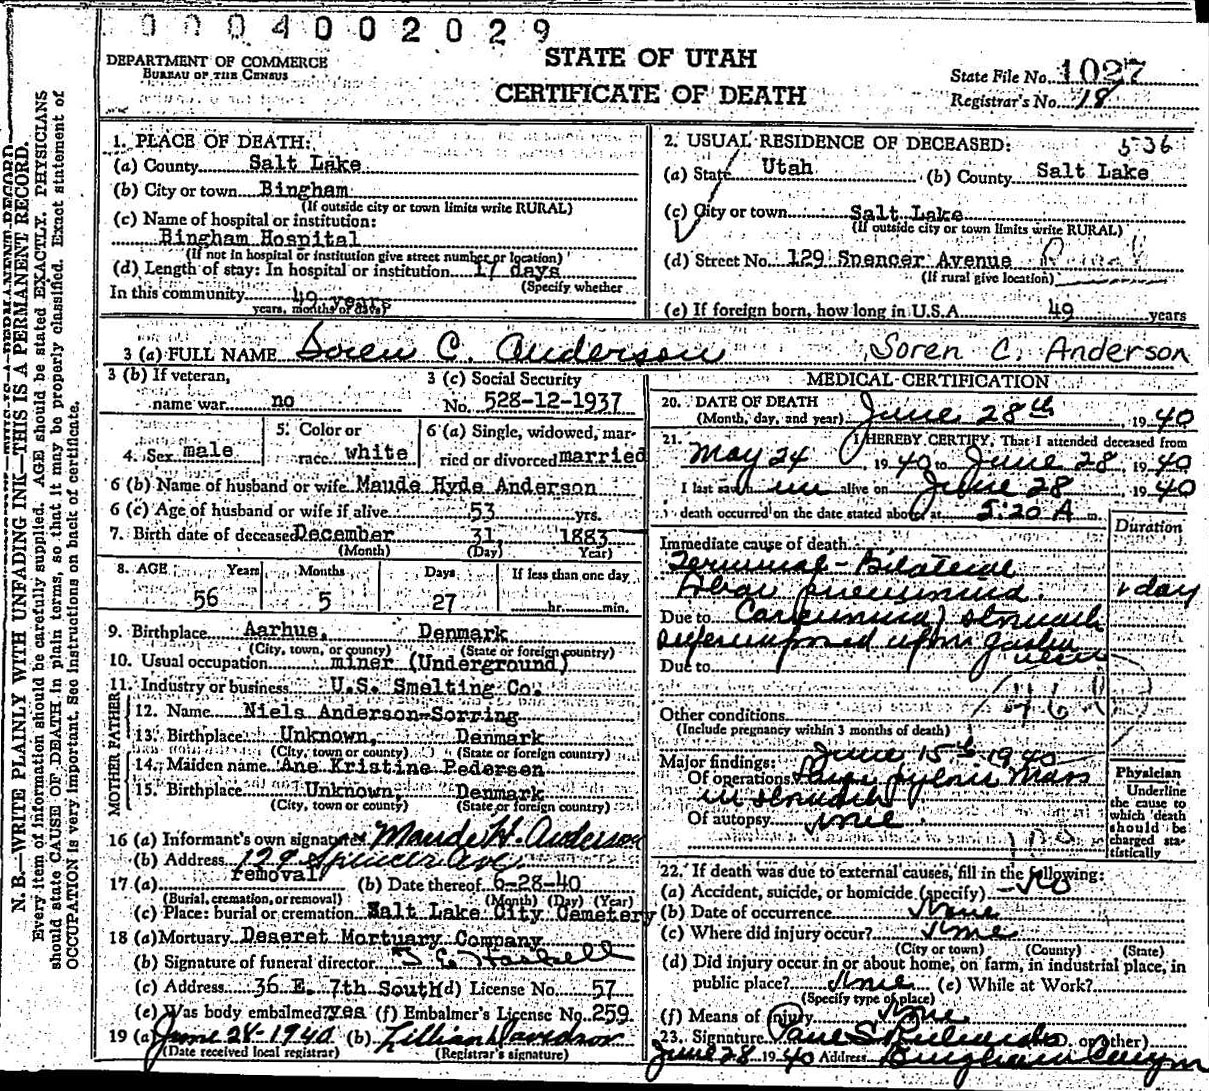 0004002029
DEPARTMENT OF COMMERCE
BUREAU OF THE CENSUS
STATE OF UTAH
CERTIFICATE OF DEATH
State File No. 1027
Registrar's No. 18
N. B.—WRITE PLAINLY WITH UNFADING INK—THIS IS A PERMANENT RECORD.
Every item of information should be carefully supplied. AGE should be stated EXACTLY. PHYSICIANS
should state CAUSE OF DEATH in plain terms, so that it may be properly classified. Exact statement of
OCCUPATION is very important. See instructions on back of certificate.
1. PLACE OF DEATH:
(a) County Salt Lake
(b) City or town Bingham
(If outside city or town limits write RURAL)
(c) Name of hospital or institution:
Bingham Hospital
(If not in hospital or institution give street number or location)
(d) Length of stay: In hospital or institution 17 days
(Specify whether
In this community 49 years
years, months or days)
2. USUAL RESIDENCE OF DECEASED: 536
(a) State Utah (b) County Salt Lake
(c) City or town Salt Lake
(If outside city or town limits write RURAL)
(d) Street No. 129 Spencer Avenue
(If rural give location)
(e) If foreign born, how long in U.S.A. 49 years
3 (a) FULL NAME Soren C. Anderson Soren C. Anderson
3 (b) If veteran, name war no
3 (c) Social Security No. 528-12-1937
4. Sex male
5. Color or race white
6 (a) Single, widowed, married or divorced married
6 (b) Name of husband or wife Maude Hyde Anderson
6 (c) Age of husband or wife if alive 53 yrs.
7. Birth date of deceased December 31, 1883
(Month) (Day) (Year)
8. AGE Years Months Days If less than one day
56 5 27 hr. min.
9. Birthplace Aarhus, Denmark
(City, town, or county) (State or foreign country)
10. Usual occupation miner (Underground)
11. Industry or business U.S. Smelting Co.
FATHER
12. Name Niels Anderson-Sorring
13. Birthplace Unknown, Denmark
(City, town or county) (State or foreign country)
MOTHER
14. Maiden name Ane Kristine Pedersen
15. Birthplace Unknown, Denmark
(City, town or county) (State or foreign country)
16 (a) Informant's own signature Maude H. Anderson
(b) Address 129 Spencer Ave
17 (a) removal (b) Date thereof 6-28-40
(Burial, cremation, or removal) (Month) (Day) (Year)
(c) Place: burial or cremation Salt Lake City Cemetery
18 (a) Mortuary Deseret Mortuary Company
(b) Signature of funeral director
(c) Address 36 E. 7th South (d) License No. 57
(e) Was body embalmed? yes (f) Embalmer's License No. 259
19 (a) June 28-1940 (b) Lillian Davidson
(Date received local registrar) (Registrar's signature)
MEDICAL CERTIFICATION
20. DATE OF DEATH
(Month, day, and year) June 28th, 1940
21. I HEREBY CERTIFY, That I attended deceased from
May 24 1940 to June 28, 1940
I last saw im alive on June 28 1940
death occurred on the date stated above at 5:20 A m.
Duration
Immediate cause of death
Terminal-Bilateral
lobar pneumonia 1 day
Due to Carcinoma, stomach
superimposed upon gastric
ulcer
Due to
46
Other conditions
(Include pregnancy within 3 months of death)
Major findings: June 15th 1940
Of operations Large pyloric Mass
in stomach
Of autopsy None
Physician
Underline
the cause to
which death
should be
charged sta-
tistically
22. If death was due to external causes, fill in the following:
(a) Accident, suicide, or homicide (specify) No
(b) Date of occurrence None
(c) Where did injury occur? None
(City or town) (County) (State)
(d) Did injury occur in or about home, on farm, in industrial place, in
public place? None (e) While at Work?
(Specify type of place)
(f) Means of Injury None
23. Signature Paul S. Richards (M.D. or other)
June 28 1940 Address Bingham Canyon